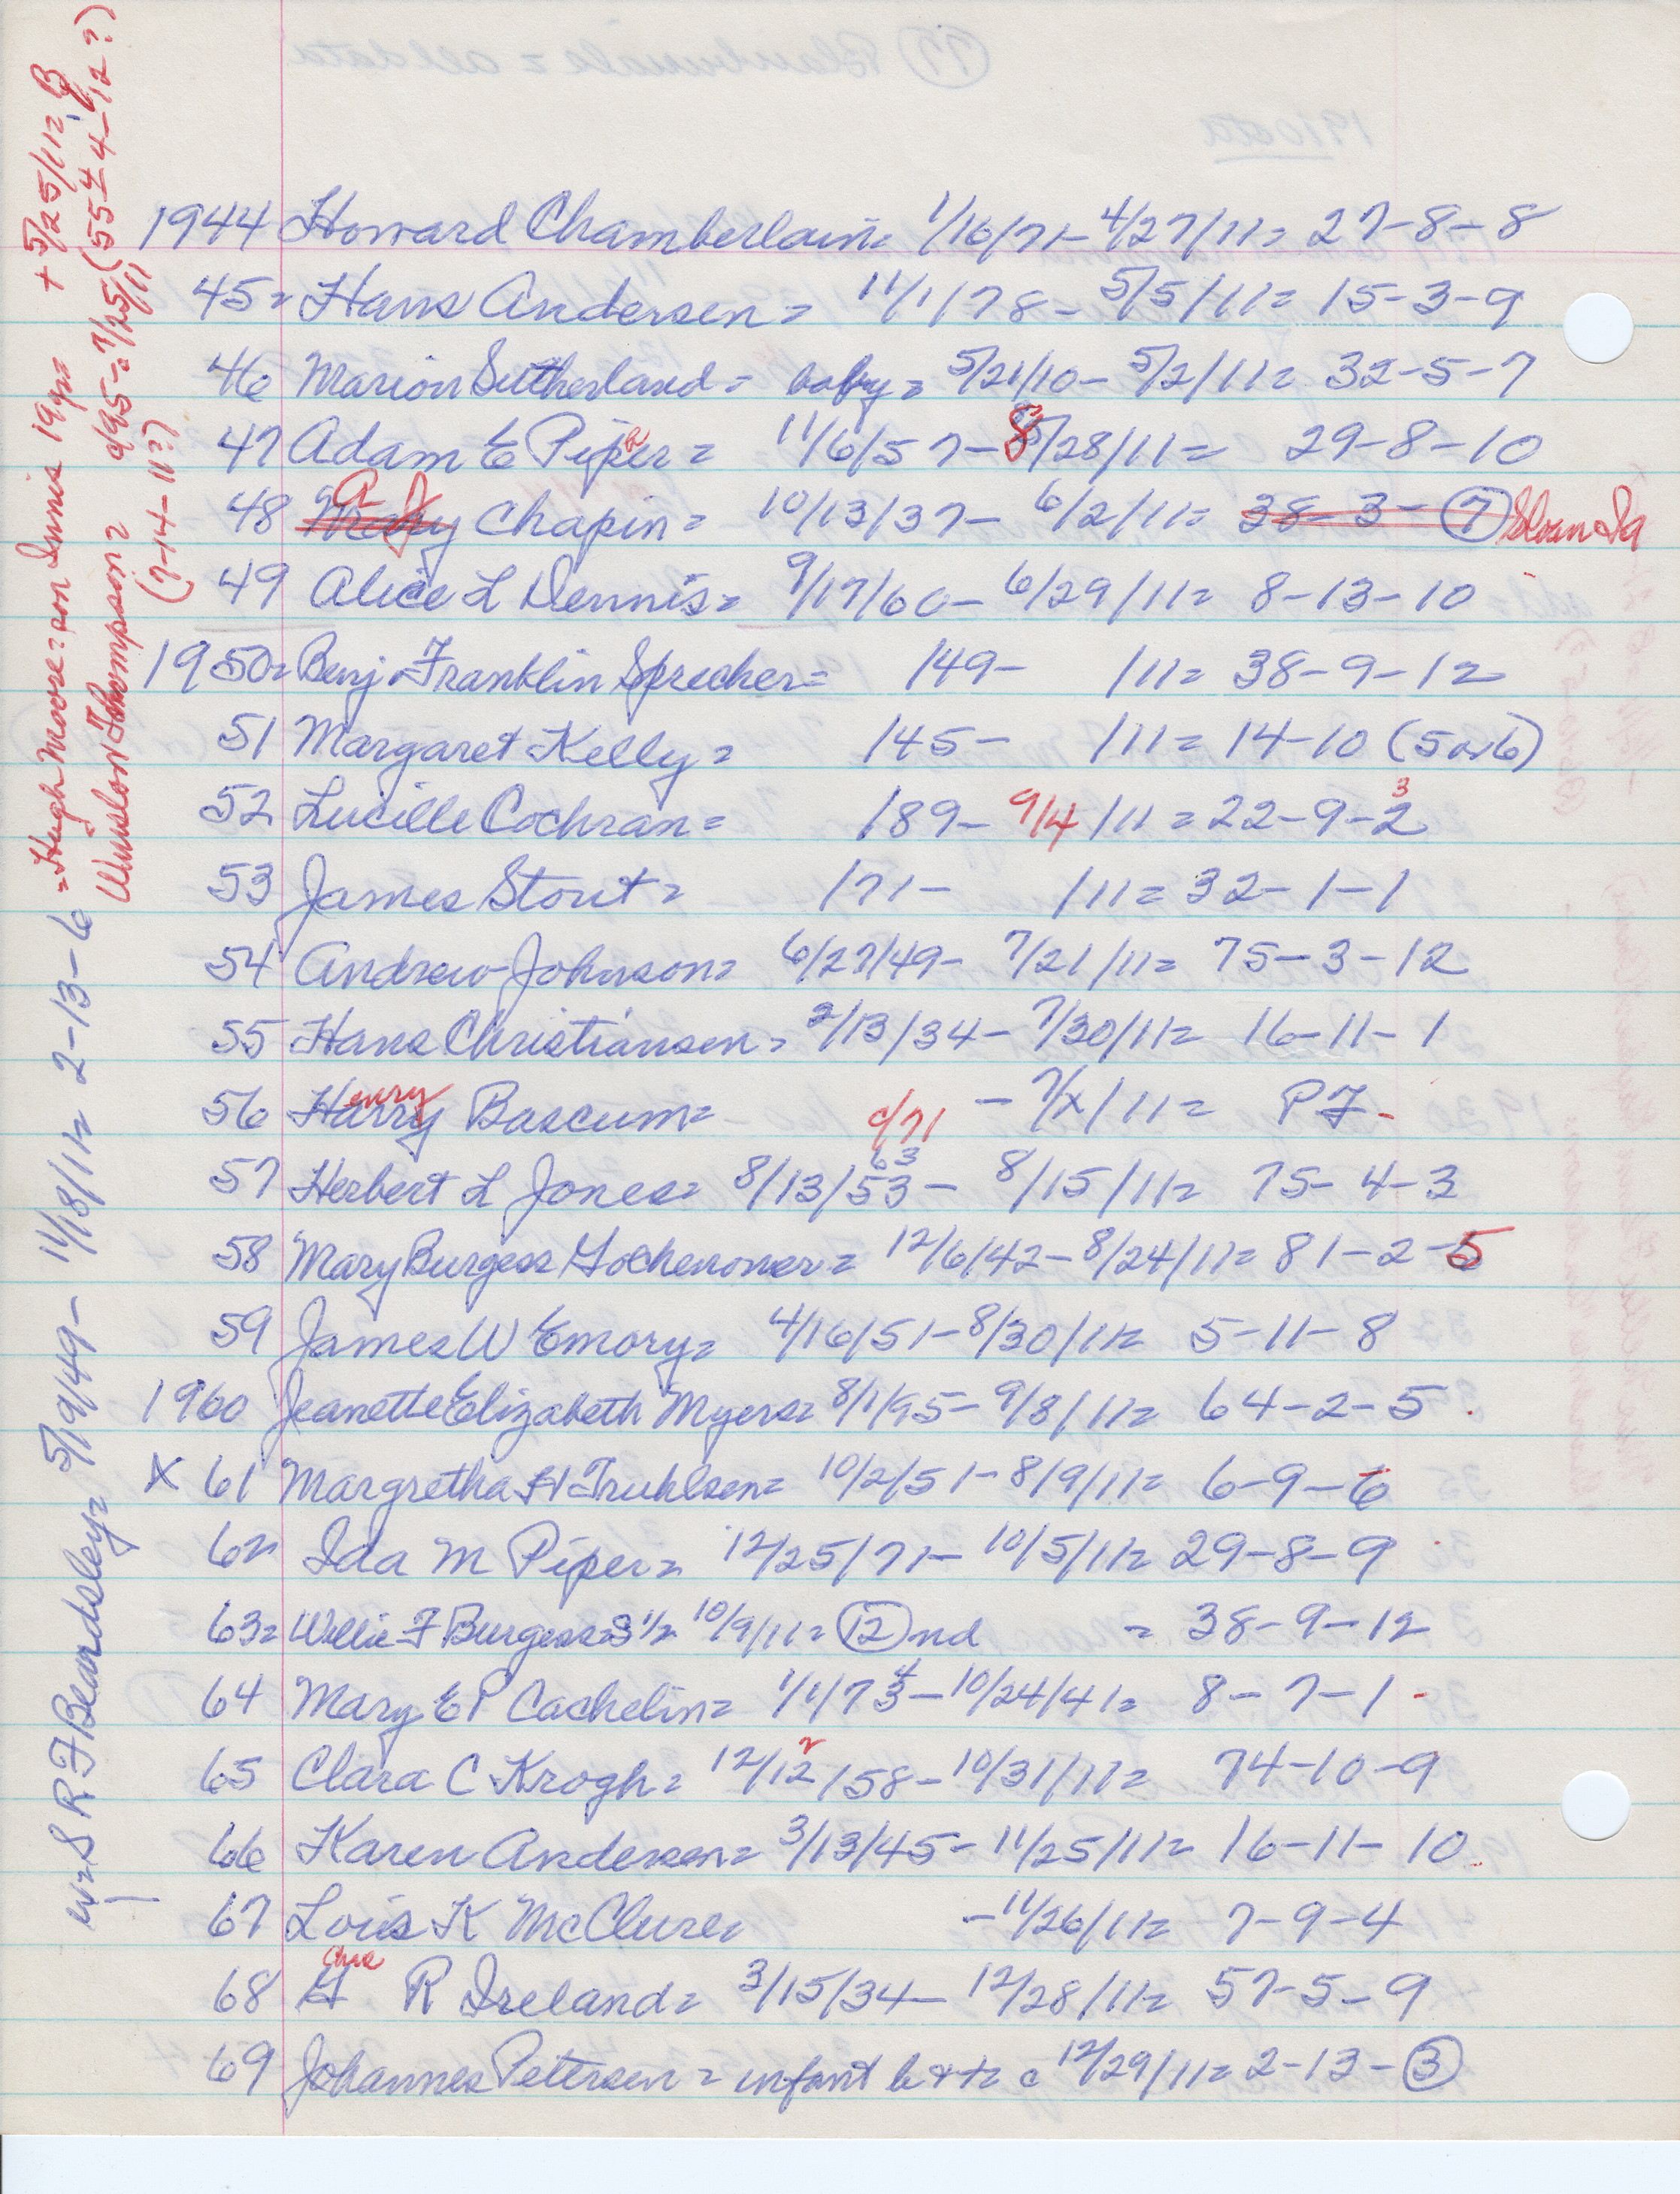 1944 Howard Chamberlain= 1/16/71- 4/27/11= 27-8-8
45= Hans Andersen= 11/1/78- 5/5/11= 15-3-9
46 Marion Sutherland= baby= 5/21/10- 5/2/11= 32-5-7
47 Adam E Piper= 11/6/57- 8/28/11= 29-8-10
48 A J Chapin= 10/13/37- 6/2/11= 38-3-7 Sloan Ia
49 Alice L Dennis= 9/17/60- 6/29/11= 8-13-10
1950= Benj Franklin Sprecher= /49- /11= 38-9-12
51 Margaret Kelly= /45- /11= 14-10 (5 or 6)
52 Lucille Cochran= /89- 9/4/11= 22-9-2 3
53 James Stout= /71- /11= 32-1-1
54 Andrew Johnson= 6/27/49- 7/21/11= 75-3-12
55 Hans Christiansen= 2/13/34- 7/30/11= 16-11-1
56 Harry enry Bascum= c/71 - 7/x/11= PF-
57 Herbert L Jones= 8/13/53 63- 8/15/11= 75-4-3
58 Mary Burgess Gochenouer= 12/6/42- 8/24/11= 81-2-5
59 James W Emory= 4/16/51- 8/30/11= 5-11-8
1960 Jeanette Elizabeth Myers= 8/1/95- 9/8/11= 64-2-5
X 61 Margretha H Truhlsen= 10/2/51- 8/9/11= 6-9-6
62= Ida M Piper= 12/25/71- 10/5/11= 29-8-9
63= Willie F Burgess=3 1/2 10/9/11= 12 nd = 38-9-12
64 Mary E P Cachelin= 1/1/73 4- 10/24/41= 8-7-1-
65 Clara C Krogh= 12/12 2/58- 10/31/11= 74-10-9
66 Karen Andersen= 3/13/45- 11/25/11= 16-11-10
67 Lois K McClure= -11/26/11= 7-9-4
68 G R Ireland= 3/15/34- 12/28/11= 57-5-9
69 Johannes Petersen= infant b & t= c 12/29/11= 2-13-3
S R F Beardsley= 5/19/49- 11/18/11= 2-13-6
=Hugh Moore=son Innis 19yr= +5/25/11=
Winslow Thompson= c/95-7/25/11 (55-4-12?)
(7-14-11?)